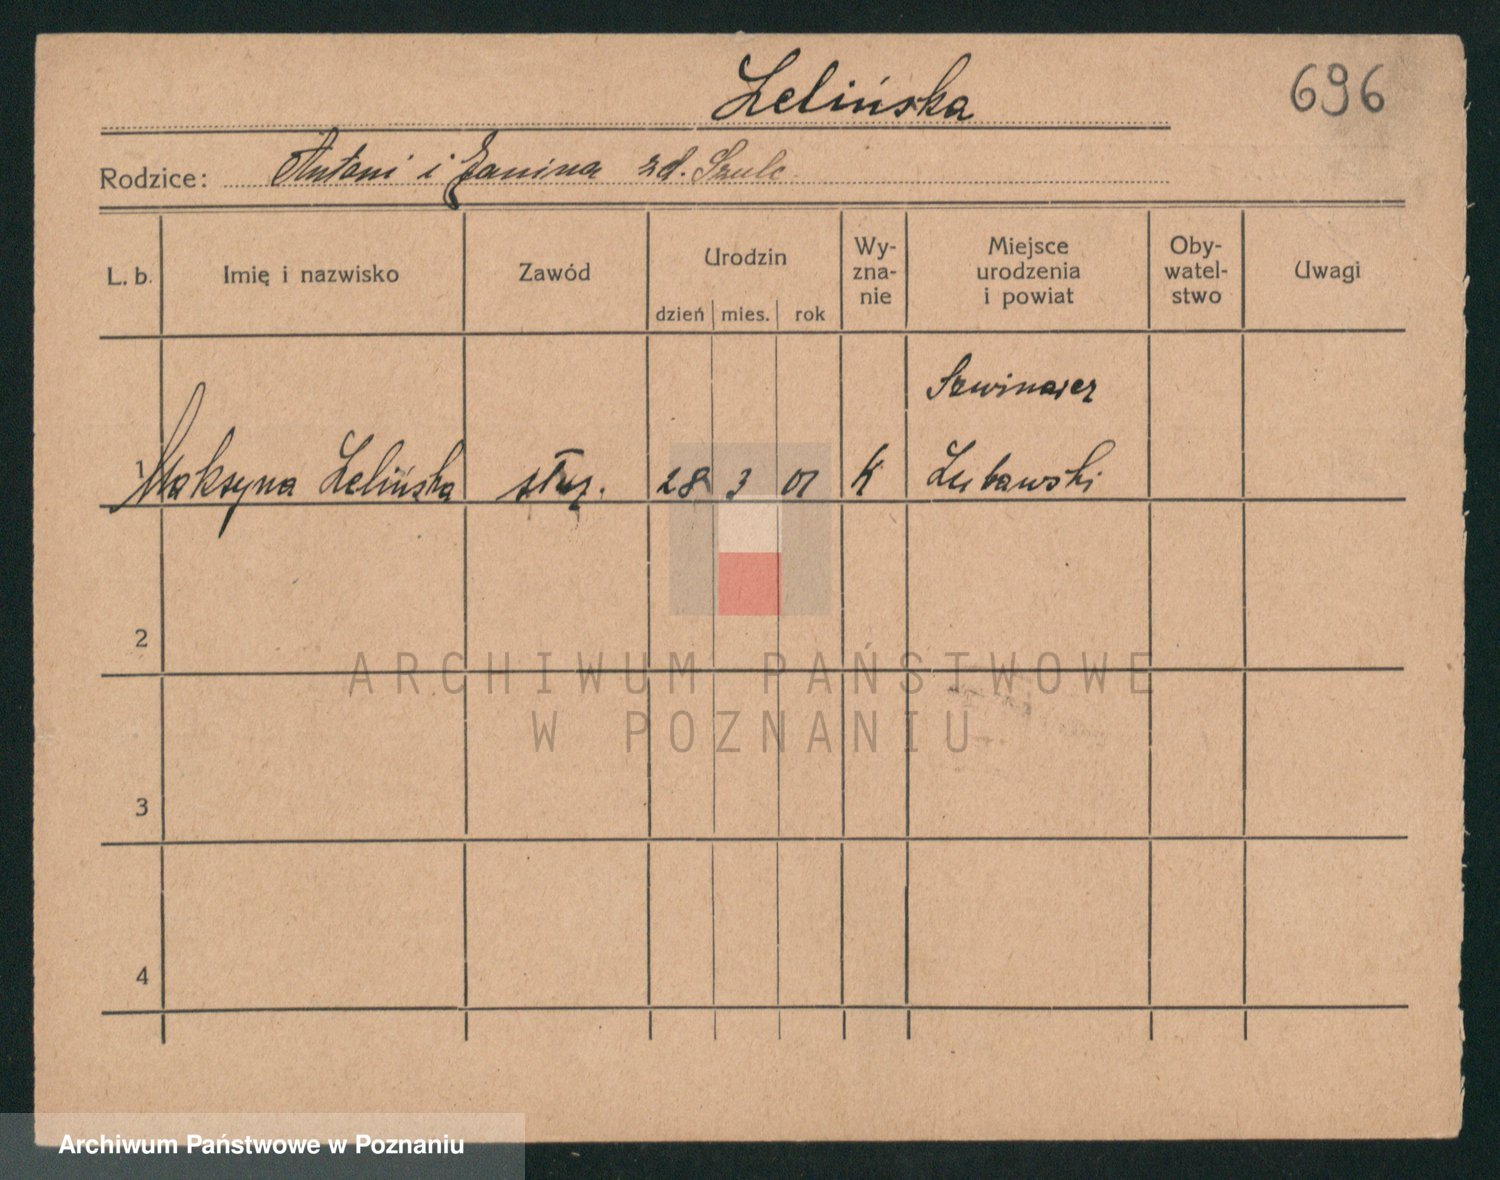 Zelińska
696
Rodzice: Antoni i Janina zd. Szulc
L. b.
Imię i nazwisko
Zawód
Urodzin
dzień mies. rok
Wy-
zna-
nie
Miejsce
urodzenia
i powiat
Oby-
watel-
stwo
Uwagi
1 Maksyna Zelińska służ. 28 3 01 K
Lubawski
2
3
4
ARCHIWUM PAŃSTWOWE
W POZNANIU
Archiwum Państwowe w Poznaniu